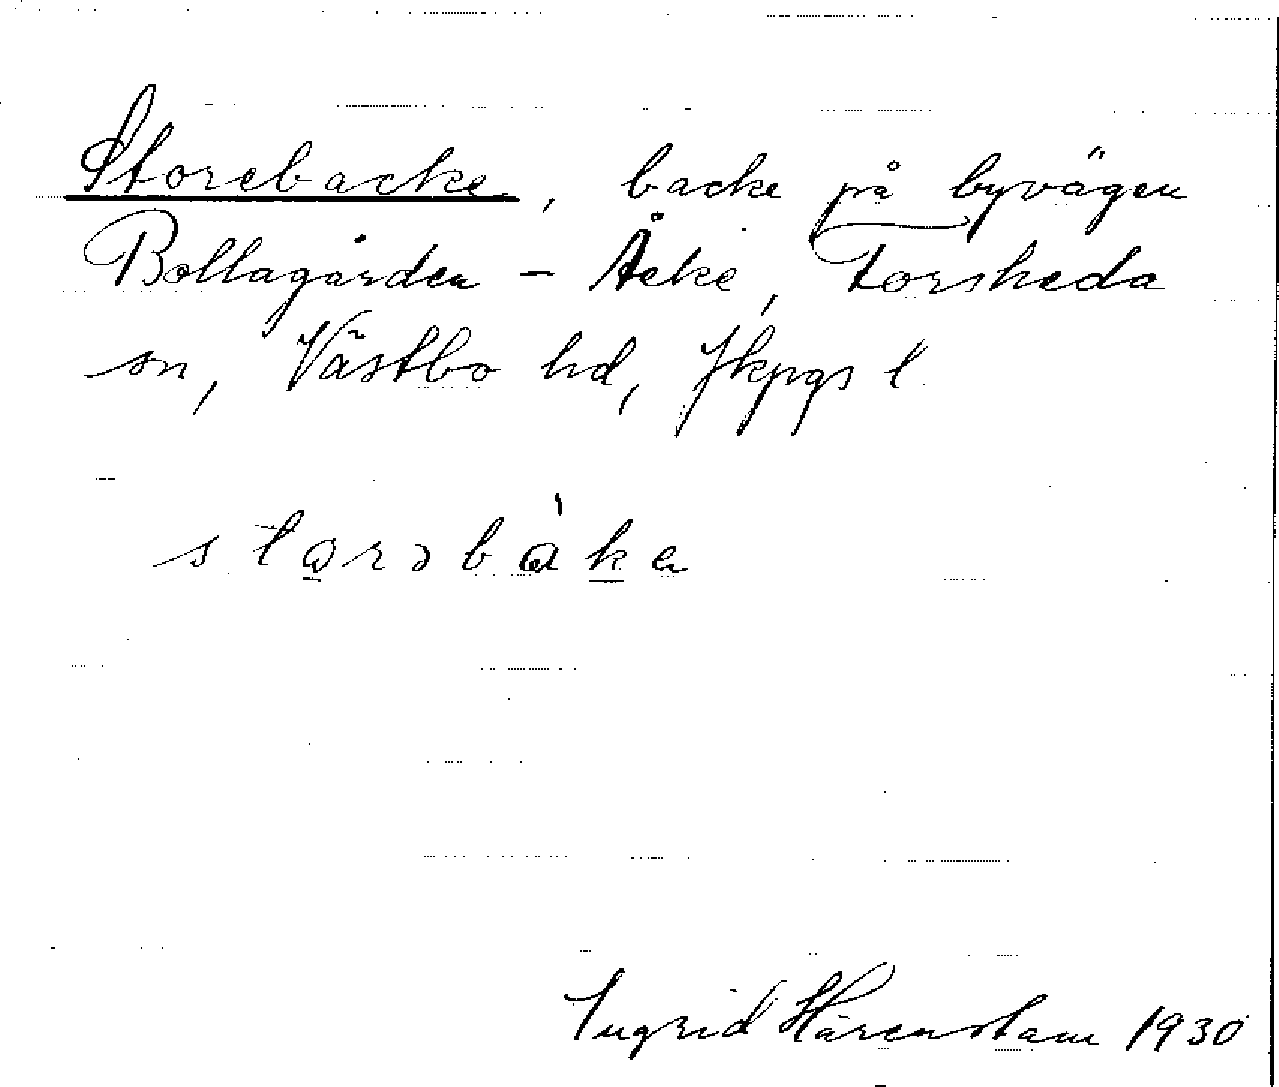 Storebacke, backe på byvägen
Bollagården - Åcke, Forsheda
sn, Västbo hd, Jkpgs l
Ingrid Härenstam 1930